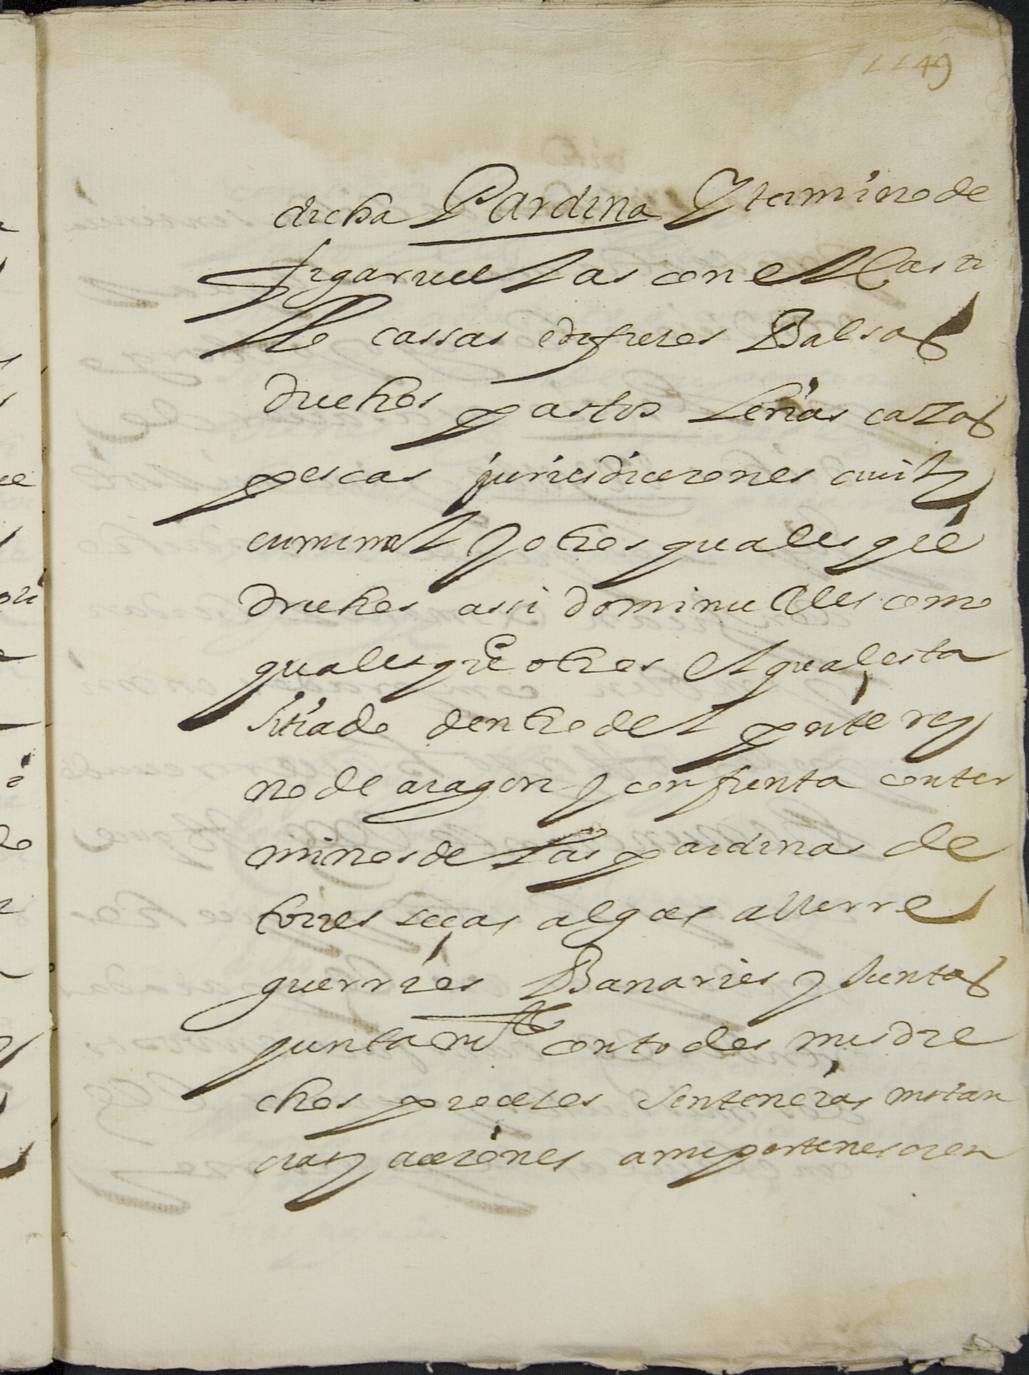 1149
dicha Pardina Y termino de
figaruelas con el Casti
llo cassas edificios Balsas
drechos pastos leñas cazas
pescas jurisdiciones civil y
criminal y otros quales qe
drechos assi dominicales como
quales qe otros el qual esta
sitiado dentro del pnte rey
no de aragon y confrenta con ter
minos de las pardinas de
torres secas algas
guerrios Banaries y Junta
juntamte con todos mis dre
chos processos sentencias instan
cias y acciones a mi pertenescien